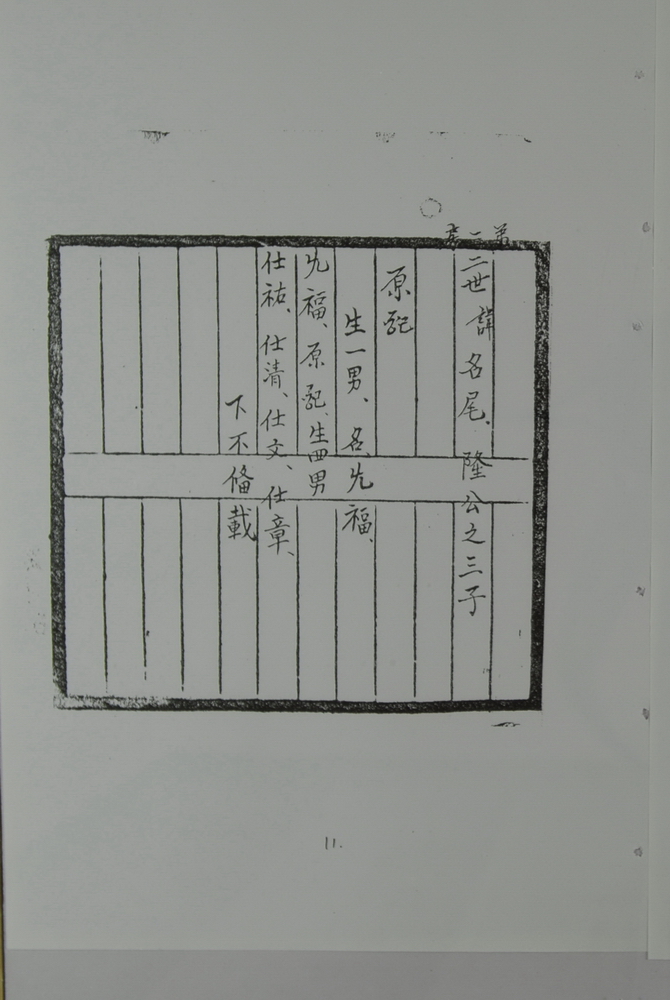 二世諱名尾、隆公之三子
原配
生一男、名允福、
允福、原配、生四男
仕祐、仕清、仕文、仕章、
下不俻載
11.